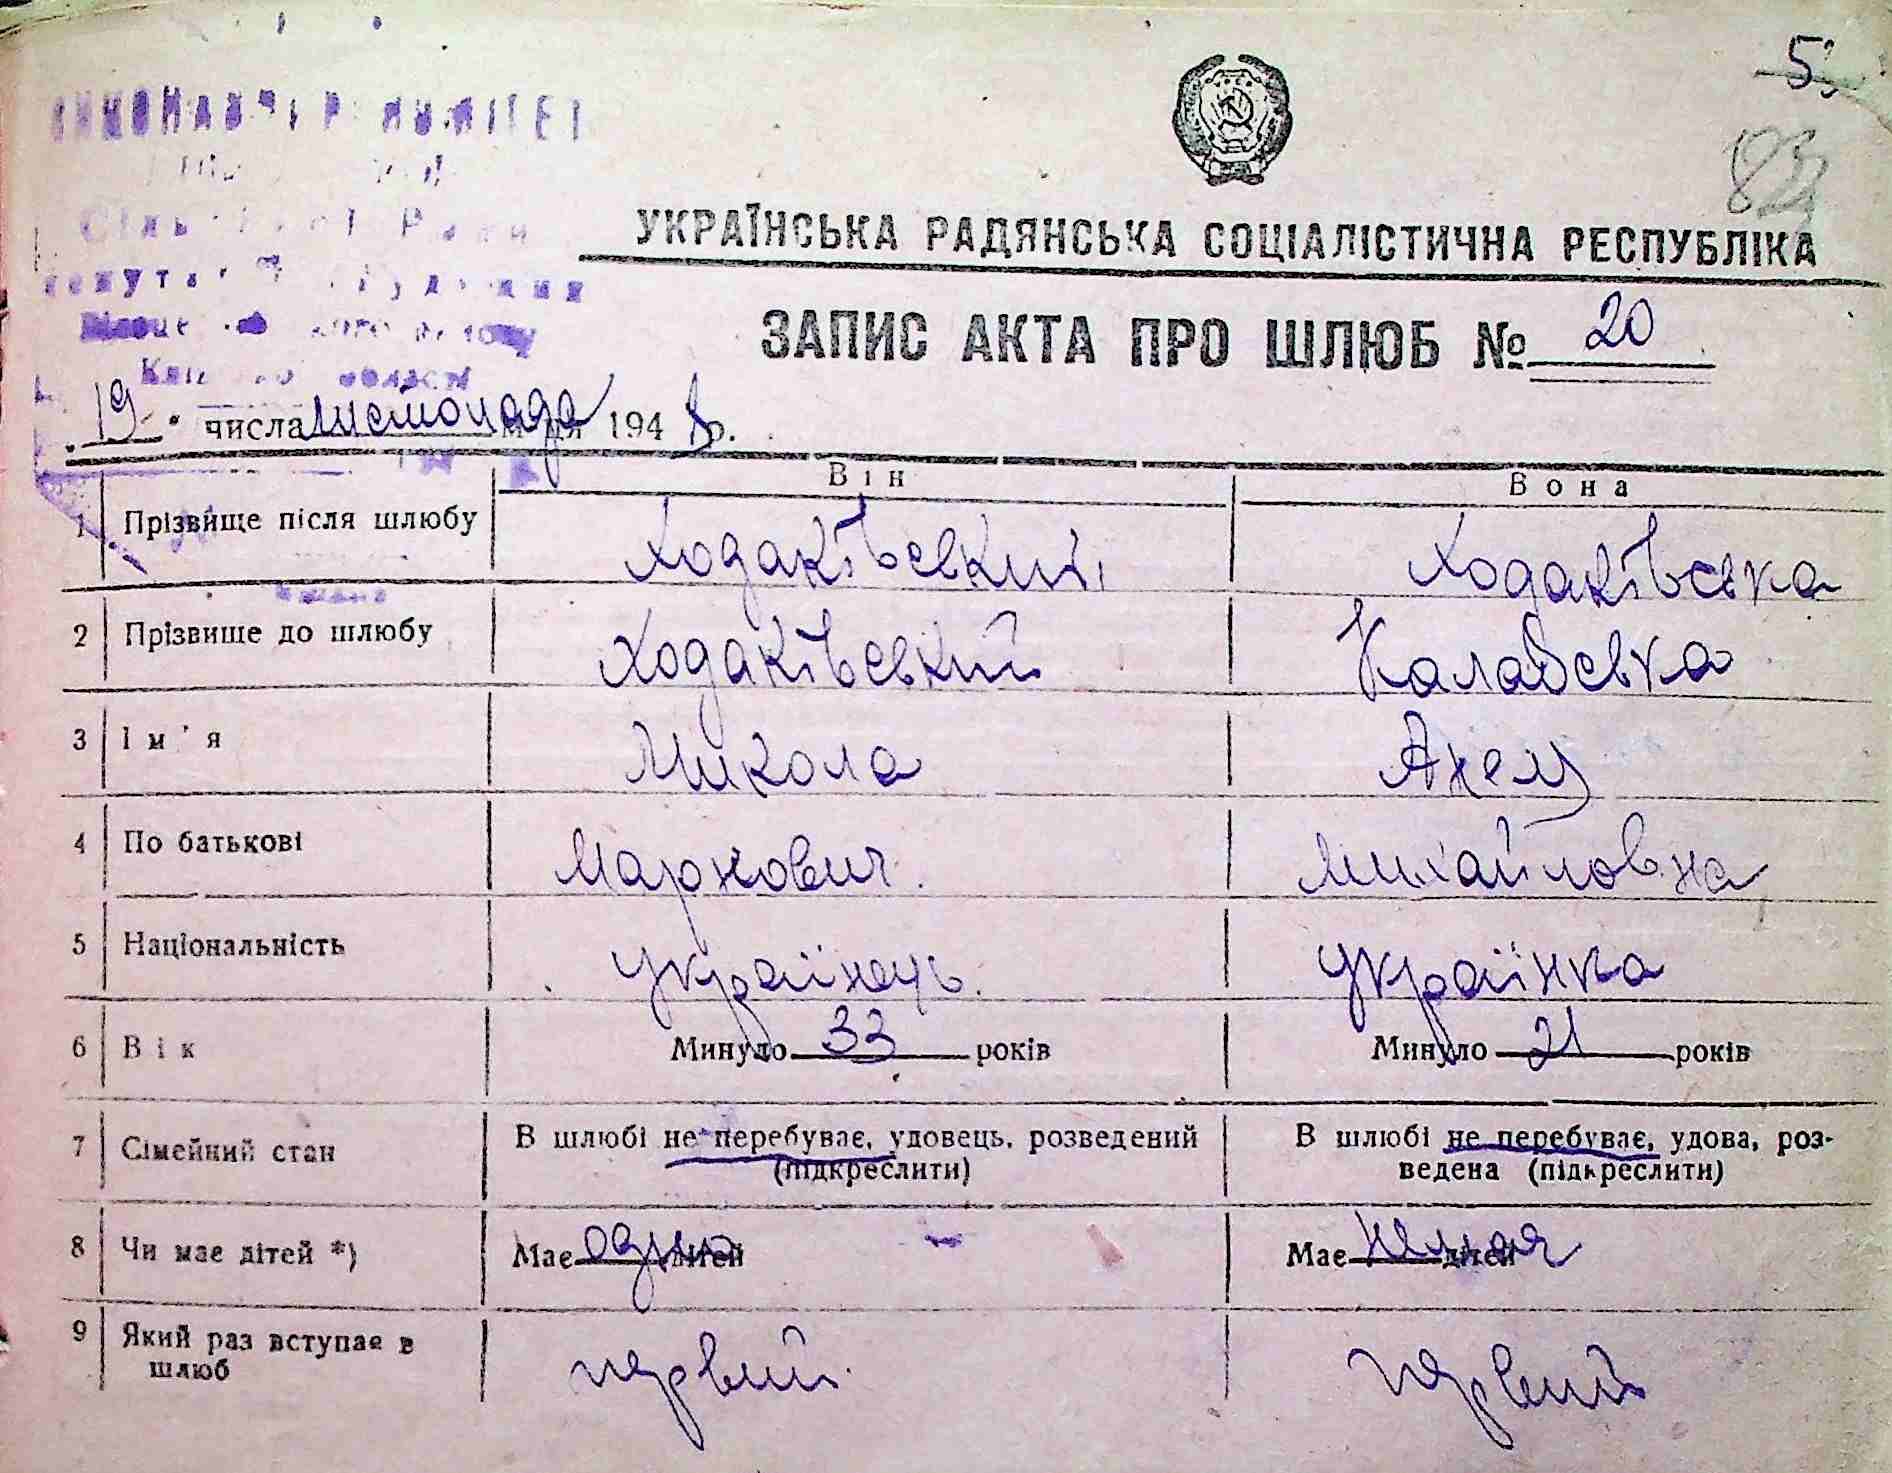 53
83
УКРАЇНСЬКА РАДЯНСЬКА СОЦІАЛІСТИЧНА РЕСПУБЛІКА
ЗАПИС АКТА ПРО ШЛЮБ № 20
"19" числа листопада м-ця 1948 р.
Він Вона
1 Прізвище після шлюбу Ходаківський Ходаківська
2 Прізвище до шлюбу Ходаківський
3 Ім'я Микола
4 По батькові Маркович. Михайловна
5 Національність українець. українка
6 Вік Минуло 33 років Минуло 21 років
7 Сімейний стан В шлюбі не перебуває, удовець, розведений В шлюбі не перебуває, удова, роз-
(підкреслити) ведена (підкреслити)
8 Чи має дітей *) Має дітей Має немая дітей
9 Який раз вступає в
шлюб первий первий